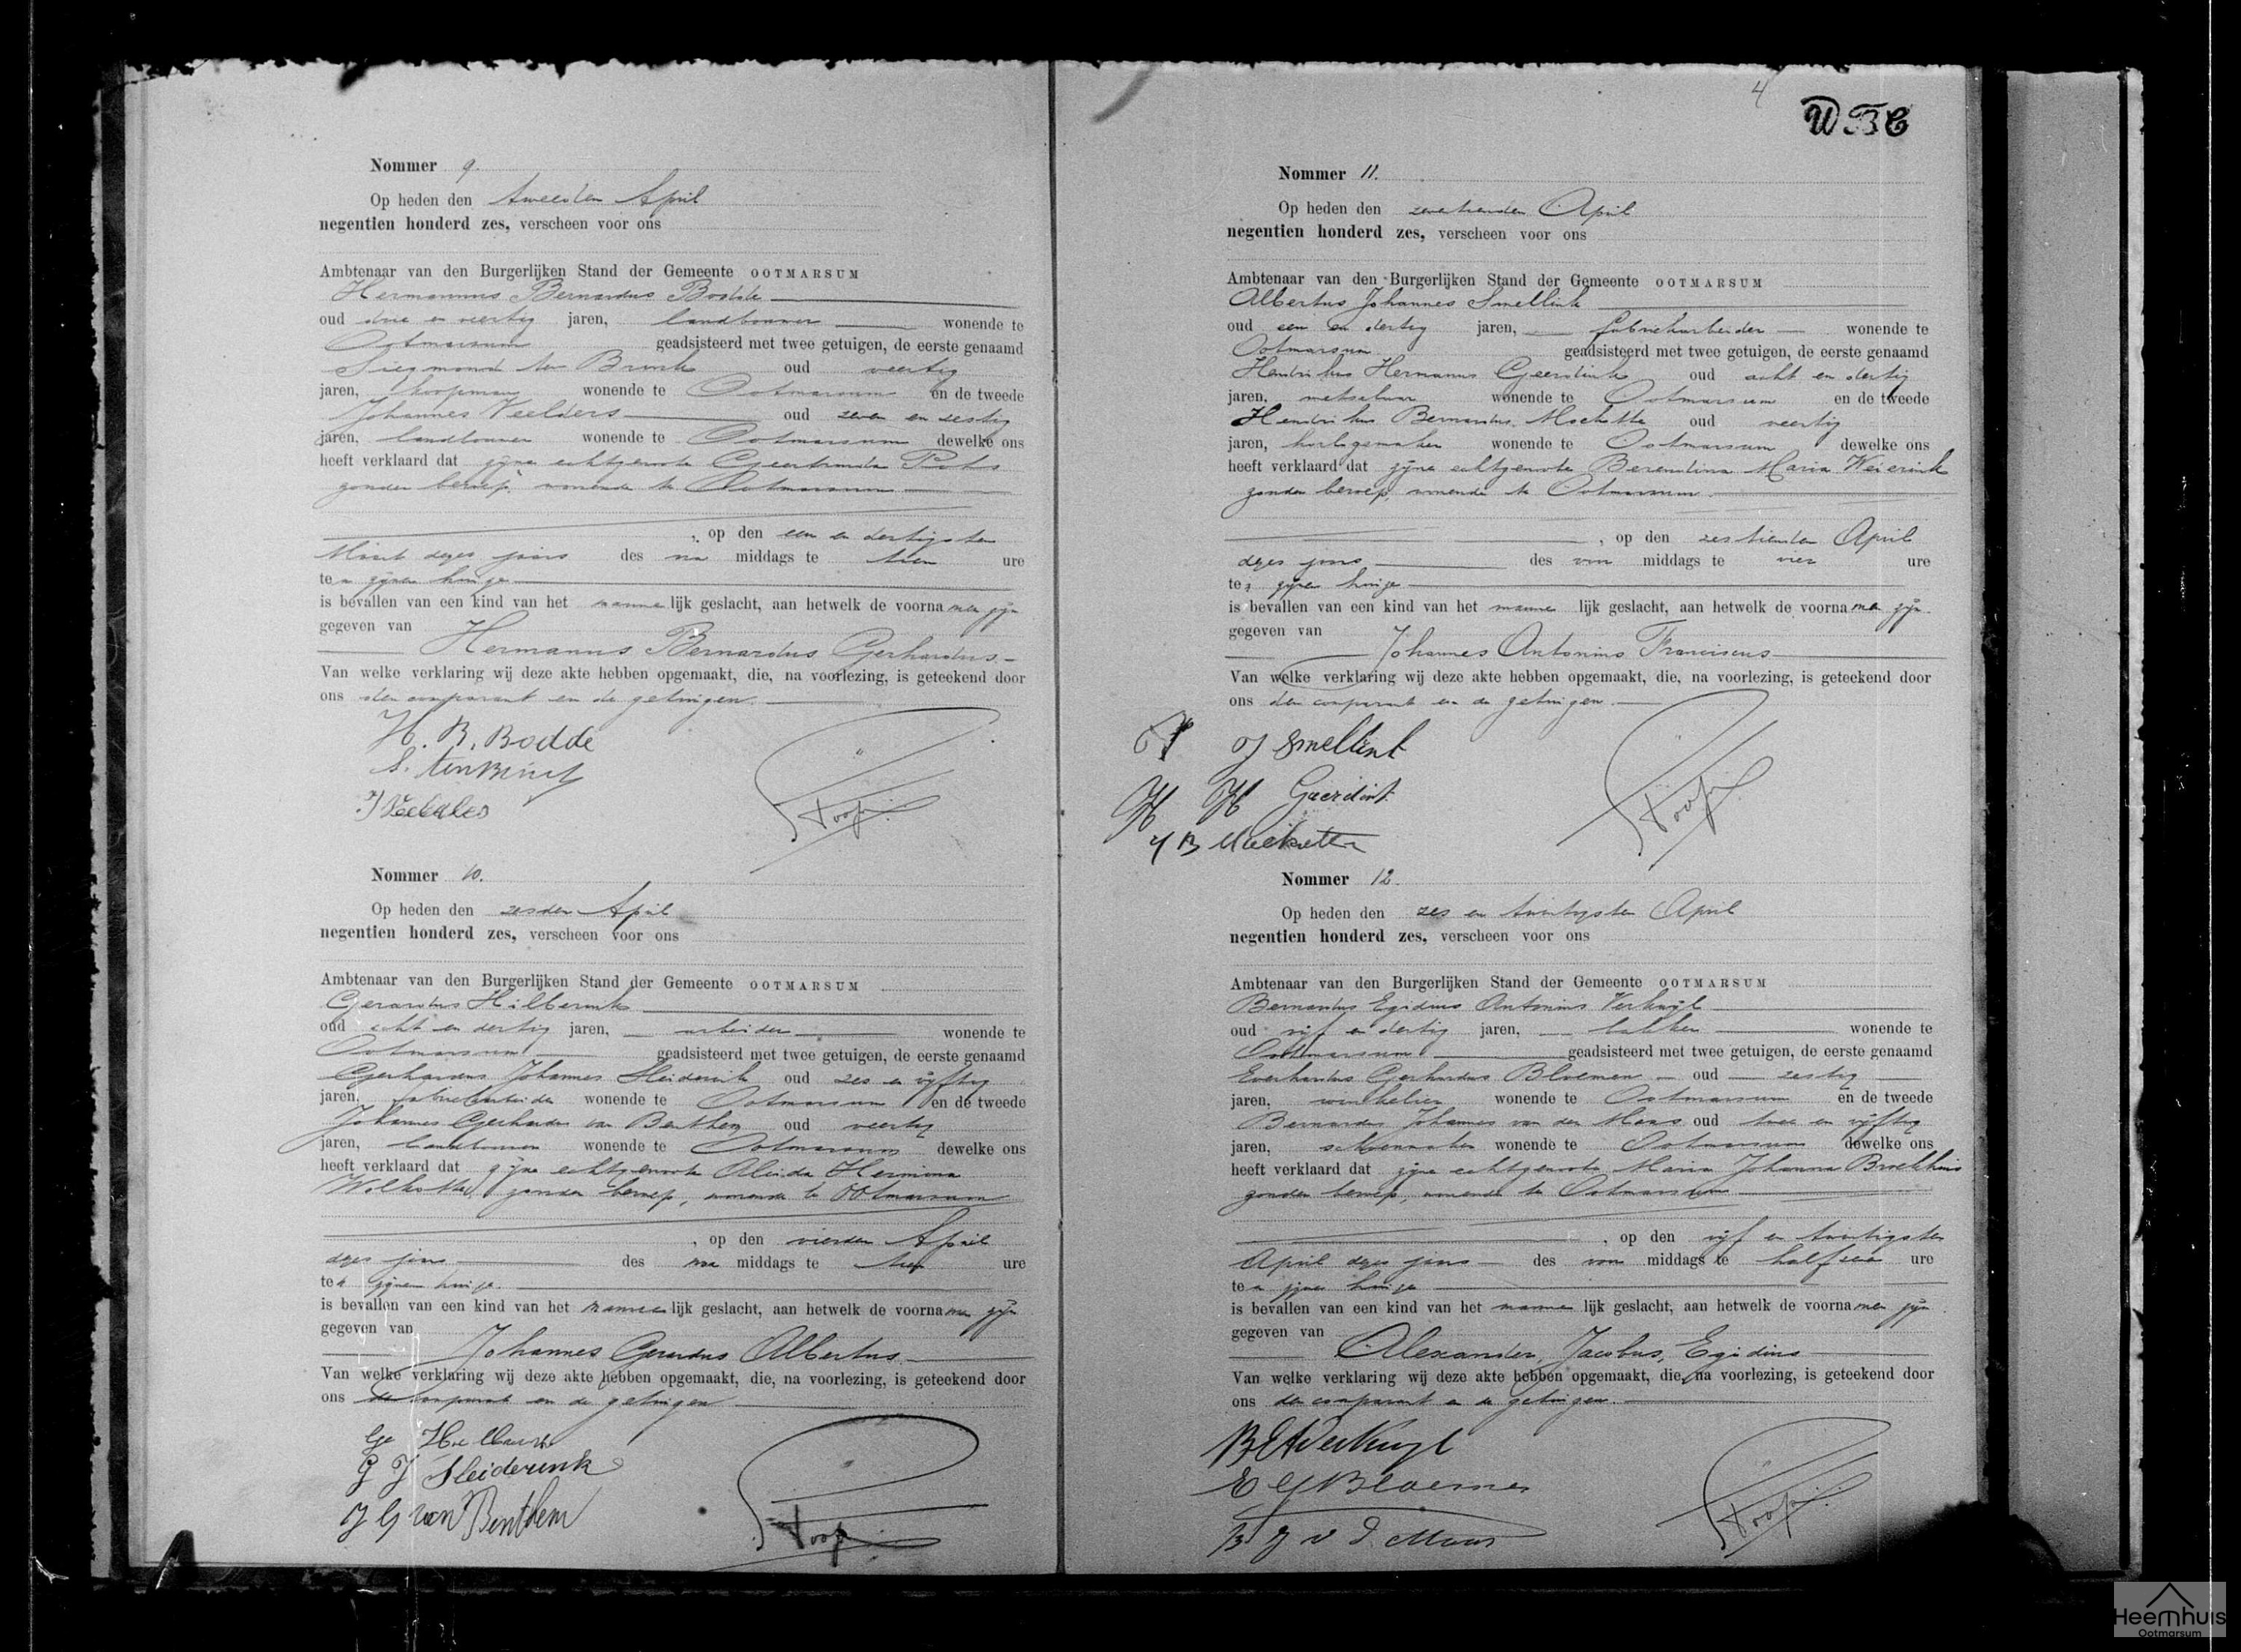 Nommer 9.
Op heden den tweeden April
negentien honderd zes, verscheen voor ons
Ambtenaar van den Burgerlijken Stand der Gemeente OOTMARSUM
Hermannus Bernardus Bodde
oud drie en veertig jaren, landbouwer wonende te
Ootmarsum geadsisteerd met twee getuigen, de eerste genaamd
Siegmond ten Brink oud veertig
jaren, koopman wonende te Ootmarsum en de tweede
Johannes Veelders oud zeven en zestig
jaren, landbouwer wonende te Ootmarsum dewelke ons
heeft verklaard dat zijne echtgenoote Geertruida
zonder beroep, wonende te Ootmarsum
, op den een en dertigsten
Maart dezes jaars des na middags te tien ure
te zijnen huize
is bevallen van een kind van het mannelijk geslacht, aan hetwelk de voornamen zijn
gegeven van
Hermannus Bernardus Gerhardus
Van welke verklaring wij deze akte hebben opgemaakt, die, na voorlezing, is geteekend door
ons den comparant en de getuigen.
H. B. Bodde
S. ten Brink
J Veelders
Nommer 10.
Op heden den zesden April
negentien honderd zes, verscheen voor ons
Ambtenaar van den Burgerlijken Stand der Gemeente OOTMARSUM
Gerardus Hilberink
oud acht en dertig jaren, arbeider wonende te
Ootmarsum geadsisteerd met twee getuigen, de eerste genaamd
Gerhardus Johannes Sleiderink oud zes en vijftig
jaren, fabriekarbeider wonende te Ootmarsum en de tweede
Johannes Gerhardus van Benthem oud veertig
jaren, landbouwer wonende te Ootmarsum dewelke ons
heeft verklaard dat zijne echtgenoote Aleida Hermina
zonder beroep, wonende te Ootmarsum
, op den vierden April
dezes jaars des na middags te tien ure
te zijnen huize.
is bevallen van een kind van het mannelijk geslacht, aan hetwelk de voornamen zijn
gegeven van
Johannes Gerardus Albertus
Van welke verklaring wij deze akte hebben opgemaakt, die, na voorlezing, is geteekend door
ons den comparant en de getuigen
G J Sleiderink
J G van Benthem
4
WBC
Nommer 11.
Op heden den zeventienden April
negentien honderd zes, verscheen voor ons
Ambtenaar van den Burgerlijken Stand der Gemeente OOTMARSUM
Albertus Johannes Smellink
oud een en dertig jaren, fabriekarbeider wonende te
Ootmarsum geadsisteerd met twee getuigen, de eerste genaamd
Hendrikus Hermanus Geerdink oud acht en dertig
jaren, metselaar wonende te Ootmarsum en de tweede
Hendrikus Bernardus Mochatte oud veertig
jaren, horlogemaker wonende te Ootmarsum dewelke ons
heeft verklaard dat zijne echtgenoote Berendina Maria Weierink
zonder beroep, wonende te Ootmarsum
, op den zestienden April
dezes jaars des voor middags te vier ure
te zijnen huize
is bevallen van een kind van het mannelijk geslacht, aan hetwelk de voornamen zijn
gegeven van
Johannes Antonius Franciscus
Van welke verklaring wij deze akte hebben opgemaakt, die, na voorlezing, is geteekend door
ons den comparant en de getuigen.
Smellink
H H Geerdink
Nommer 12.
Op heden den zes en twintigsten April
negentien honderd zes, verscheen voor ons
Ambtenaar van den Burgerlijken Stand der Gemeente OOTMARSUM
Bernardus Egidius Antonius Verhuijl
oud vijf en dertig jaren, bakker wonende te
Ootmarsum geadsisteerd met twee getuigen, de eerste genaamd
Everhardus Gerhardus Bloemen oud zestig
jaren, winkelier wonende te Ootmarsum en de tweede
Bernardus Johannes van der Maas oud twee en vijftig
jaren, schoenmaker wonende te Ootmarsum dewelke ons
heeft verklaard dat zijne echtgenoote Maria Johanna Broekhuis
zonder beroep, wonende te Ootmarsum
, op den vijf en twintigsten
April dezes jaars des voor middags te half ure
te zijnen huize
is bevallen van een kind van het mannelijk geslacht, aan hetwelk de voornamen zijn
gegeven van
Alexander, Jacobus, Egidius
Van welke verklaring wij deze akte hebben opgemaakt, die, na voorlezing, is geteekend door
ons den comparant en de getuigen.
E G Bloemen
B J v d Maas
Heemhuis
Ootmarsum